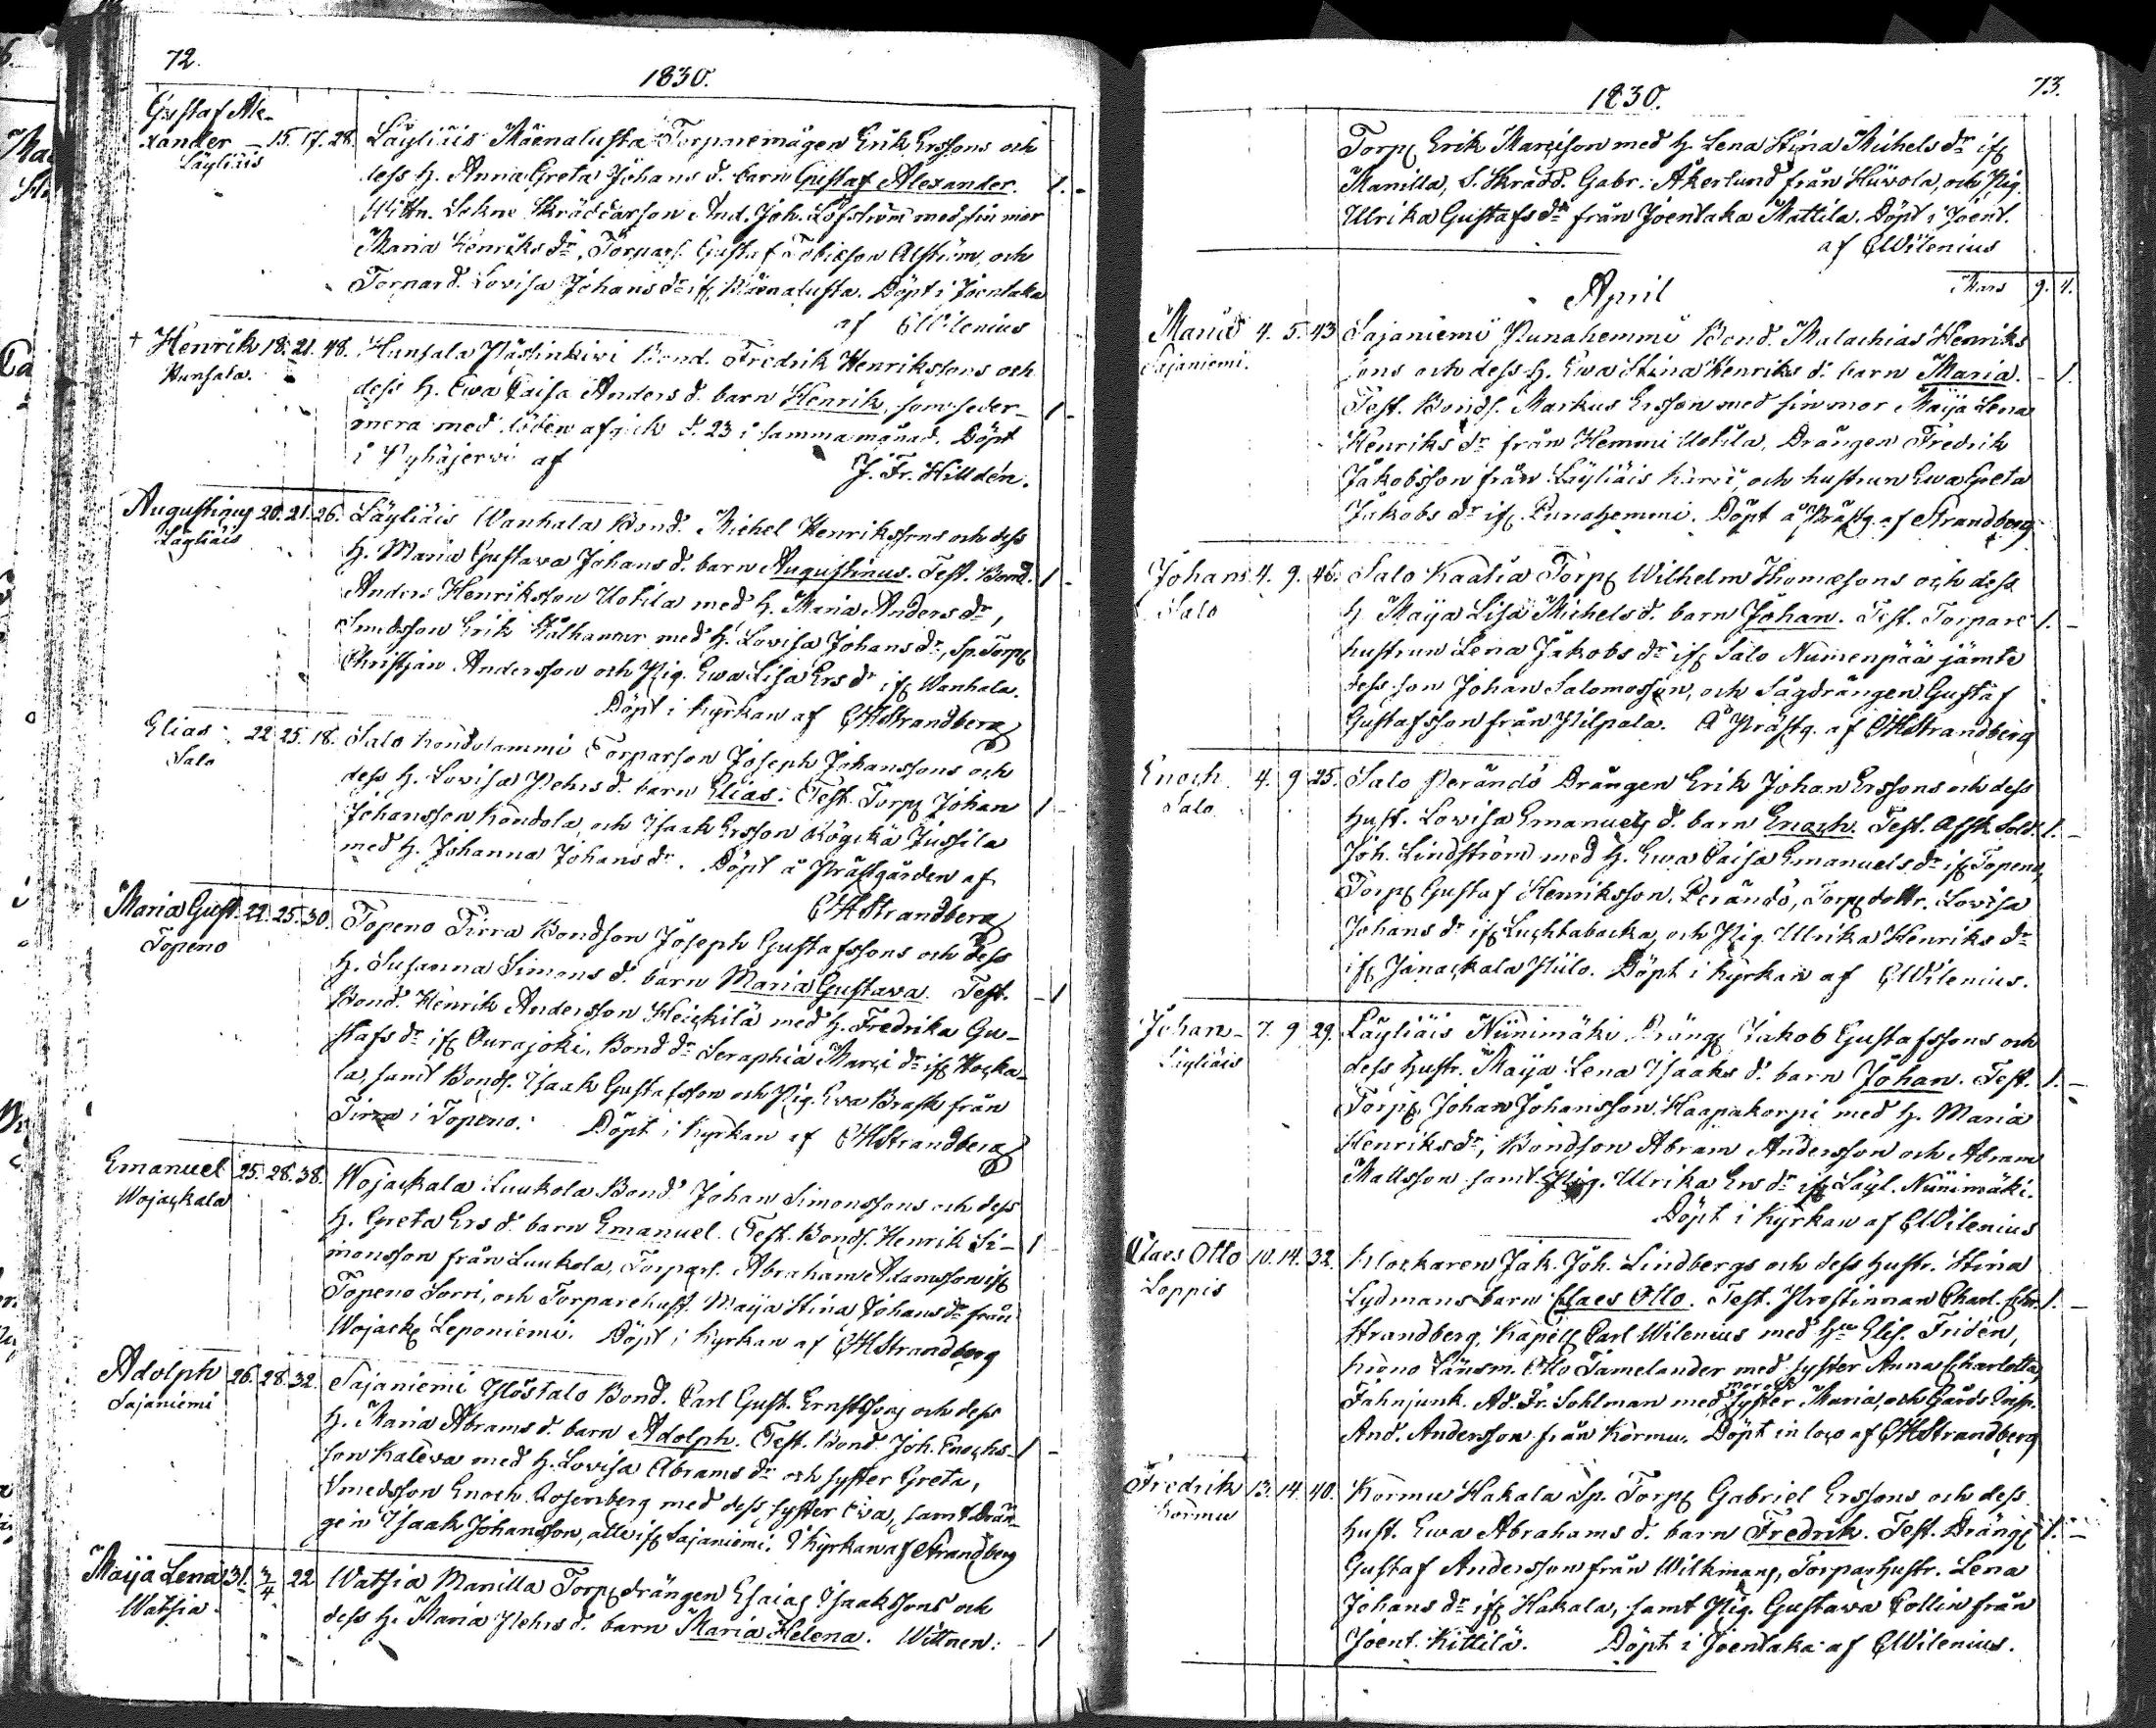 72.
1830.
Gustaf Ale-
xander – 15. 17. 28. Läyliäis Mäenalusta Torparemågen Erik Erssons och
Läyliäis
dess H. Anna Greta Johans d. barn Gustaf Alexander. 1. -
Wittn. Sokne Skräddarson And. Joh. Löfström med sin mor
Maria Henriks dr, Torpars. Gustaf Tobiæson Alström, och
Torpard. Lovisa Johans dr if Mäenalusta. Döpt i Joentaka
af CWilenius
+ Henrik 18. 21. 48. Hunsala Pässinkivi Bond. Fredrik Henrikssons och
Hunsala.
dess H. Ewa Caisa Anders d. barn Henrik, som seder- 1 -
mera med döden afgick d. 23 i samma månad. Döpt
i Pyhäjerwi af J. Fr. Hilldén.
Augustinus 20. 21. 26. Läyliäis Wanhala Bond. Michel Henrikssons och dess
Läyliäis
H. Maria Gustava Johans d. barn Augustinus. Test. Bond. 1 -
Anders Henriksson Uotila med H. Maria Anders dr,
Smedsson Erik Stålhamar med H. Lovisa Johans dr, Sp. Torp
Christjan Andersson och Pig. Ewa Lisa Ers dr if Wanhala.
Döpt i Kyrkan af CHStrandberg
Elias 22 25. 18. Salo Kondolammi Torparson Joseph Johanssons och
Salo
dess H. Lovisa Pehrs d. barn Elias. Test. Torp Johan 1 -
Johansson Kondola, och Isaak Ersson Rögickä Jussila
med H. Johanna Johans dr. Döpt å Prästgården af
CHStrandberg
Maria Gust. 22. 25. 30. Topeno Tirra Bondson Joseph Gustafssons och dess
Topeno
H. Susanna Simons d. barn Maria Gustava. Test. - 1
Bond. Henrik Andersson Heickilä med H. Fredrika Gu-
stafs dr if Ourajoki, Bond dr Seraphia Marci dr if Hocka-
la, samt Bonds. Isaak Gustafsson och Pig. Eva Brask från
Tirra i Topeno. Döpt i Kyrkan af CHStrandberg
Emanuel 25. 28. 38. Wojackala Luukola Bond. Johan Simonssons och dess
Wojackala
H. Greta Ers d. barn Emanuel. Test. Bonds. Henrik Si- 1
monsson från Luukola, Torpars. Abraham Adamsson if
Topeno Sorri, och Torparehust. Maija Stina Johans dr från
Wojack Leponiemi. Döpt i Kyrkan af CHStrandberg
Adolph 26. 28. 32. Sajaniemi Ylöstalo Bond. Carl Gust. Ernstssons och dess
Sajaniemi
H. Maria Abrams d. barn Adolph. Test. Bond. Joh. Enochs- 1 -
son Kaleva med H. Lovisa Abrams dr och syster Greta,
Smedsson Enoch Rosenberg med dess syster Eva, samt Drän-
gen Isaak Johansson, alle if Sajaniemi. I Kyrkan af Strandberg
Maija Lena 31. 4/4. 22 Watsia Manilla Torp drängen Esaias Isaaksons och
Watsia.
dess H. Maria Pehrs d. barn Maria Helena. Wittnen: - 1
1830. 73.
Torp Erik Marcison med H. Lena Stina Michels dr if
Manilla, S. Skrädd. Gabr. Åkerlund från Hüvola, och Pig.
Ulrika Gustafs dr från Joentaka Mattila. Döpt i Joent.
af CWilenius
April Mars 9. 4.
Maria 4. 5. 43 Sajaniemi Punahemmi Bond. Malachias Henriks
Sajaniemi.
sons och dess H. Ewa Stina Henriks d. barn Maria. - 1.
Test. Bonds. Markus Ersson med sin mor Maija Lena
Henriks dr från Hemmi Uotila, Drängen Fredrik
Jakobsson från Läyliäis Kurri, och hustrun Ewa Greta
Jakobs dr if Punahemmi. Döpt å Prästg. af Strandberg
Johan 4. 9. 46. Salo Kaatia Torp Wilhelm Thomæsons och dess
Salo
H. Maija Lisa Michels d. barn Johan. Test. Torpare 1. -
hustrun Lena Jakobs dr if Salo Numenpää jämte
dess son Johan Salomosson, och Sågdrängen Gustaf
Gustafsson från Pilpala. Å Prästg. af CHStrandberg
Enoch 4. 9 25. Salo Perändö Drängen Erik Johan Erssons och dess
Salo
Hust. Lovisa Emanuels d. barn Enoch. Test. Afsk. Sold. 1. -
Joh. Lindström med H. Ewa Caisa Emanuels dr if Topeno,
Torp Gustaf Henriksson Perändö, Torp dottr. Lovisa
Johans dr if Luchtabacka, och Pig. Ulrika Henriks dr
if Janackala Hiilo. Döpt i Kyrkan af CWilenius.
Johan 7. 9 29. Läyliäis Niinimäki Dräng Jakob Gustafssons och
Läyliäis
dess Hustr. Maija Lena Isaaks d. barn Johan. Test. 1. -
Torp Johan Johansson Haapakorpi med H. Maria
Henriks dr, Bondson Abram Andersson och Abram
Mattsson samt Pig. Ulrika Ers dr if Läyl. Niinimäki.
Döpt i Kyrkan af CWilenius
Claes Otto 10. 14. 32. Klockaren Jak. Joh. Lindbergs och dess Hustr. Stina
Loppis
Lydmans barn Claes Otto. Test. Prostinnan Charl. 1. -
Strandberg, Kapell Carl Wilenius med Hu Elis. Friden,
Krono Länsm. Otto Tamelander med syster Anna Charlotta,
Fahnjunk. Ad. Fr. Sohlman med morens syster Maria, och Gårds Insp.
And. Andersson från Kormu. Döpt in loco af CHStrandberg
Fredrik 13. 14. 40. Kormu Hakala Sp. Torp Gabriel Erssons och dess
Kormu
Hust. Ewa Abrahams d. barn Fredrik. Test. Dräng 1. -
Gustaf Andersson från Wilkmans, Torparhustr. Lena
Johans dr if Hakala, samt Pig. Gustava Collin från
Joent. Kittilä. Döpt i Joentaka af CWilenius.